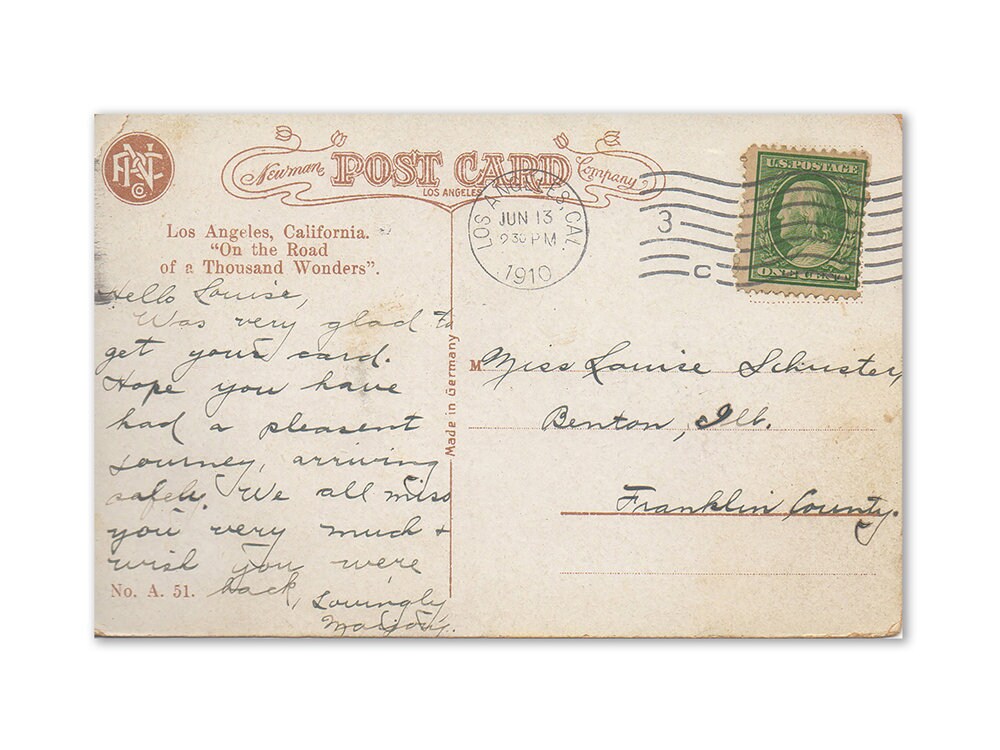 Newman POST CARD Company
LOS ANGELES
Los Angeles, California.
"On the Road
of a Thousand Wonders".
LOS ANGELES, CAL.
JUN 13
9 30 PM
1910
3
C
U.S. POSTAGE
ONE CENT
Hello Louise,
Was very glad to
get your card.
Hope you have
had a pleasent
journey, arriving
safely. We all miss
you very much +
wish you were
back,
Lovingly
Marjory.
No. A. 51.
Made in Germany
M
Miss Louise Schuster,
Benton, Ill.
Franklin County.